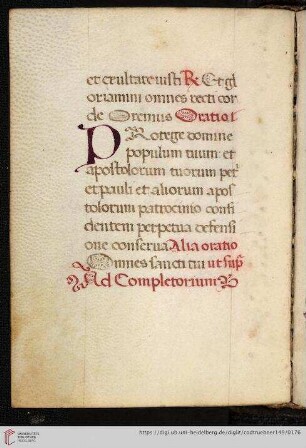 et exultate iusti R Et gl
oriamini omnes recti cor
de Oremus Oratio
PRotege domine
populum tuum et
apostolorum tuorum petri
et pauli et aliorum apos
tolorum patrocinio confi
dentem perpetua defensi
one conserva Alia oratio
Omnes sancti tui ut sup
Ad Completorium
UNIVERSITÄTS-
BIBLIOTHEK
HEIDELBERG
https://digi.ub.uni-heidelberg.de/diglit/codtruebner149/0176